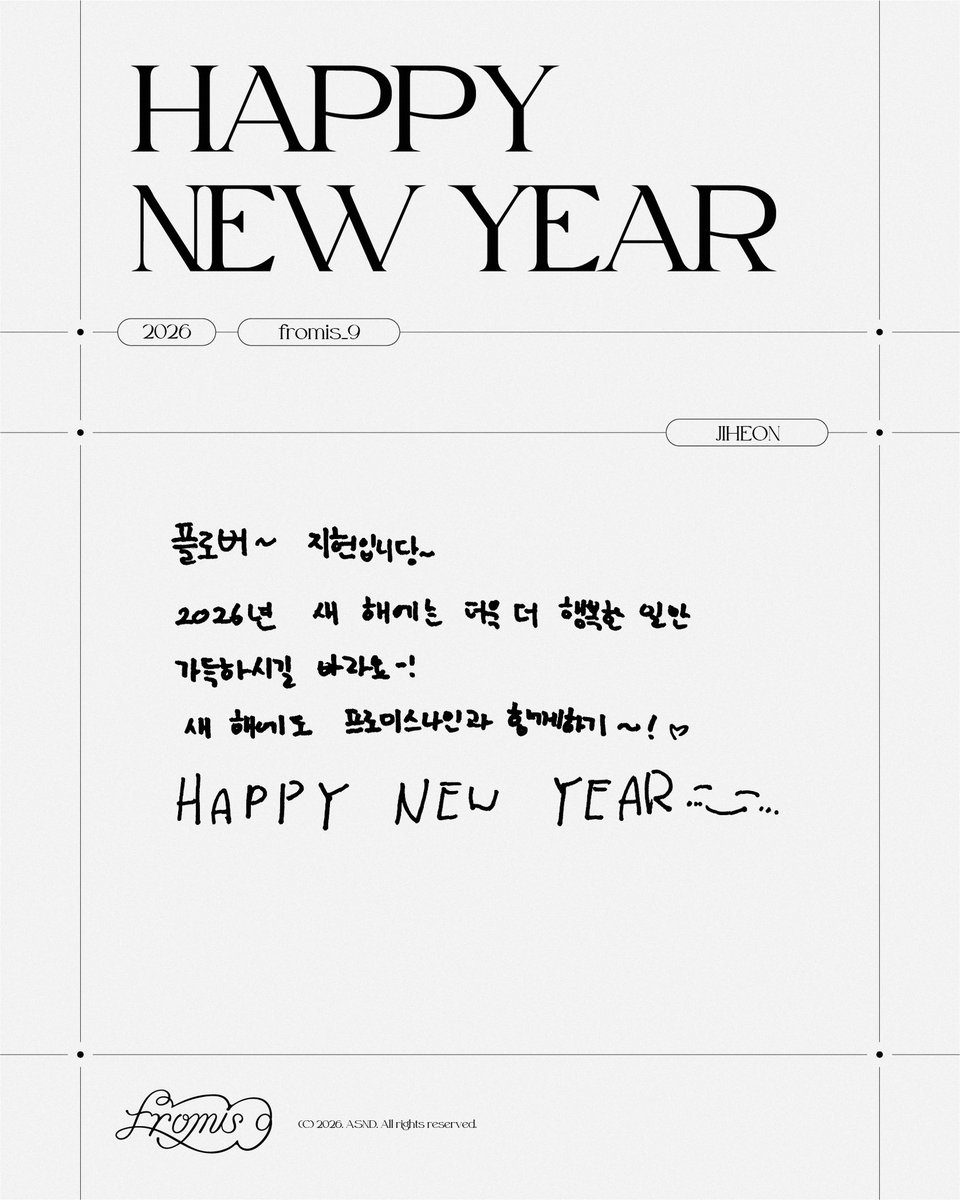 HAPPY
NEW YEAR
2026 fromis_9
JIHEON
플로버~ 지헌입니당~
2026년 새 해에는 더욱 더 행복한 일만
가득하시길 바라요~!
새 해에도 프로미스나인과 함께하기~!♡
HAPPY NEW YEAR
fromis 9
(C) 2026. ASND. All rights reserved.